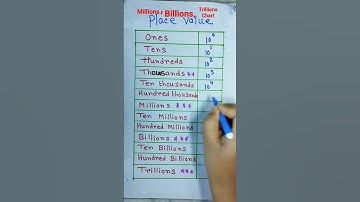 Millions, Billions, Trillions Chart
Place Value
Ones 10⁰
Tens 10¹
Hundreds 10²
Thousands ** 10³
Ten thousands 10⁴
Hundred thousands
Millions ***
Ten Millions
Hundred Millions
Billions ***
Ten Billions
Hundred Billions
Trillions ***